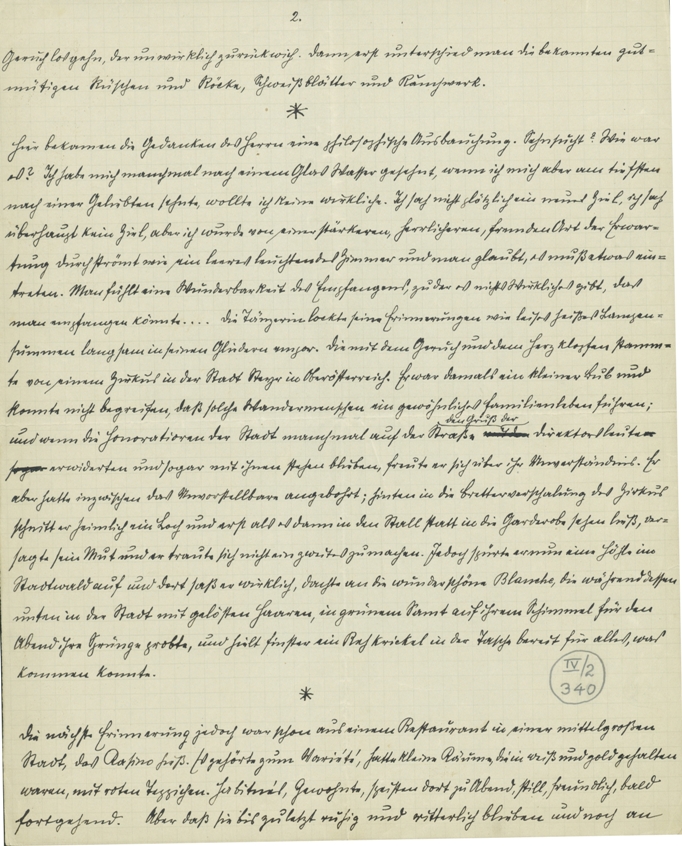 2.
Geruch losgehn, der unwirklich zurückwich. Dann erst unterschied man die bekannten gut=
mütigen Rüschen und Röcke, Schweißblätter und Rüschwerk.
*
Hier bekamen die Gedanken des Herrn eine philosophische Ausbauchung. Sehnsucht? Wie war
es? Ich habe mich manchmal nach einem Glas Wasser gesehnt, wenn ich mich aber am tiefsten
nach einer Geliebten sehnte, wollte ich keine wirkliche. Ich sah nicht plötzlich ein neues Ziel, ich sah
überhaupt kein Ziel, aber ich wurde von einer stärkeren, herrlicheren, fremden Art der Erwar=
tung durchströmt wie ein leeres leuchtendes Zimmer und man glaubt, es muß etwas ein=
treten. Man fühlt eine Wunderbarkeit des Empfangens, zu der es nichts Wirkliches gibt, das
man empfangen könnte.... Die Tänzerin lockte seine Erinnerungen wie leises heißes Lampen=
summen langsam in seinen Gliedern empor. Die mit dem Geruch und dem Herzklopfen stamm=
te von einem Zirkus in der Stadt Steyr in Oberösterreich. Er war damals ein kleiner Bub und
konnte nicht begreifen, daß solche Wandermenschen ein gewöhnliches Familienleben führen;
den Gruß der
und wenn die Honoratioren der Stadt manchmal auf der Straße Direktorsleute
sogar erwiderten und sogar mit ihnen stehen blieben, freute er sich über ihr Unverständnis. Er
aber hatte inzwischen das Unvorstellbare angebohrt; hinten in die Bretterverschalung des Zirkus
schnitt er heimlich ein Loch und erst als es dann in den Stall statt in die Garderobe sehen ließ, ver=
sagte sein Mut und er traute sich nicht ein zweites zu machen. Jedoch spürte er nun eine Höhle im
Stadtwald auf und dort saß er wirklich, dachte an die wunderschöne Blanche, die währenddessen
unten in der Stadt mit gelösten Haaren, in grünem Samt auf ihrem Schimmel für den
Abend ihre Sprünge probte, und hielt finster ein Rehkrickel in der Tasche bereit für alles, was
kommen konnte.
IV/2
340
*
Die nächste Erinnerung jedoch war schon aus einem Restaurant in einer mittelgroßen
Stadt, das Kasino hieß. Es gehörte zum Varieté, hatte kleine Räume, die in weiß und gold gehalten
waren, mit roten Teppichen. Habitués, Gewohnte, speisten dort zu Abend, still, freundlich, bald
fortgehend. Aber daß sie bis zuletzt ruhig und ritterlich blieben und noch an